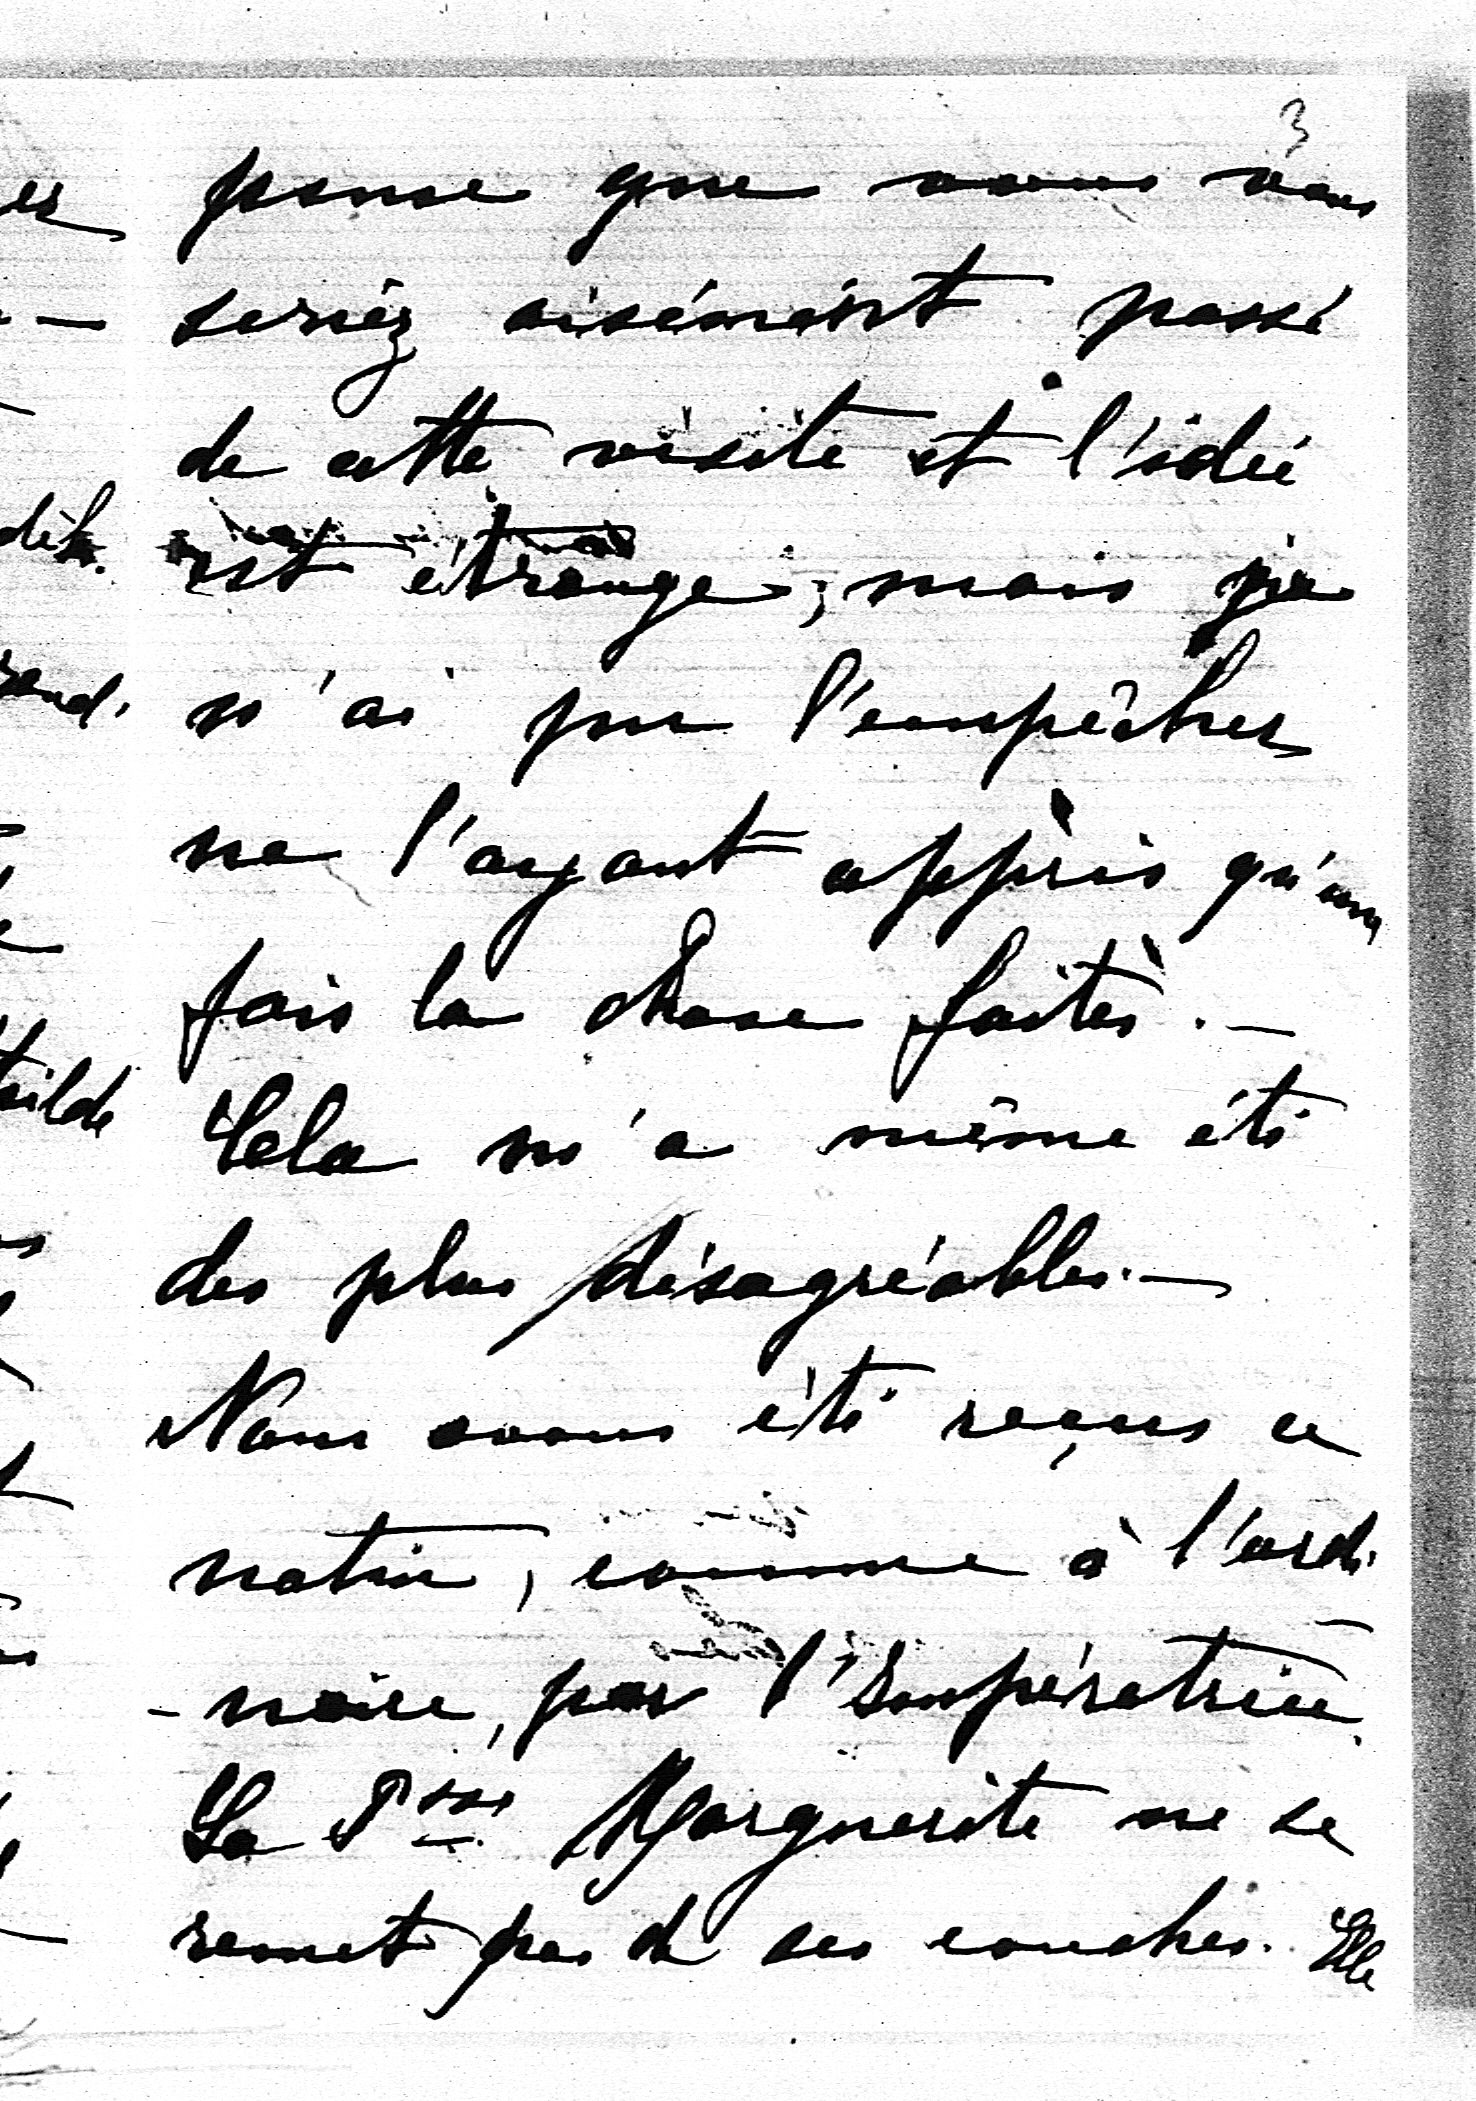 3
pense que vous vous
seriez aisément passé
de cette visite et l'idée
est étrange; mais je
n'ai pu l'empêcher
ne l'ayant appris qu'une
fois la chose faite. —
Cela m'a même été
des plus désagréables. —
Nous avons été reçus ce
matin, comme à l'ordi
- naire, par l'Impératrice.
La Psse Marguerite ne se
remet pas de ses couches. Elle